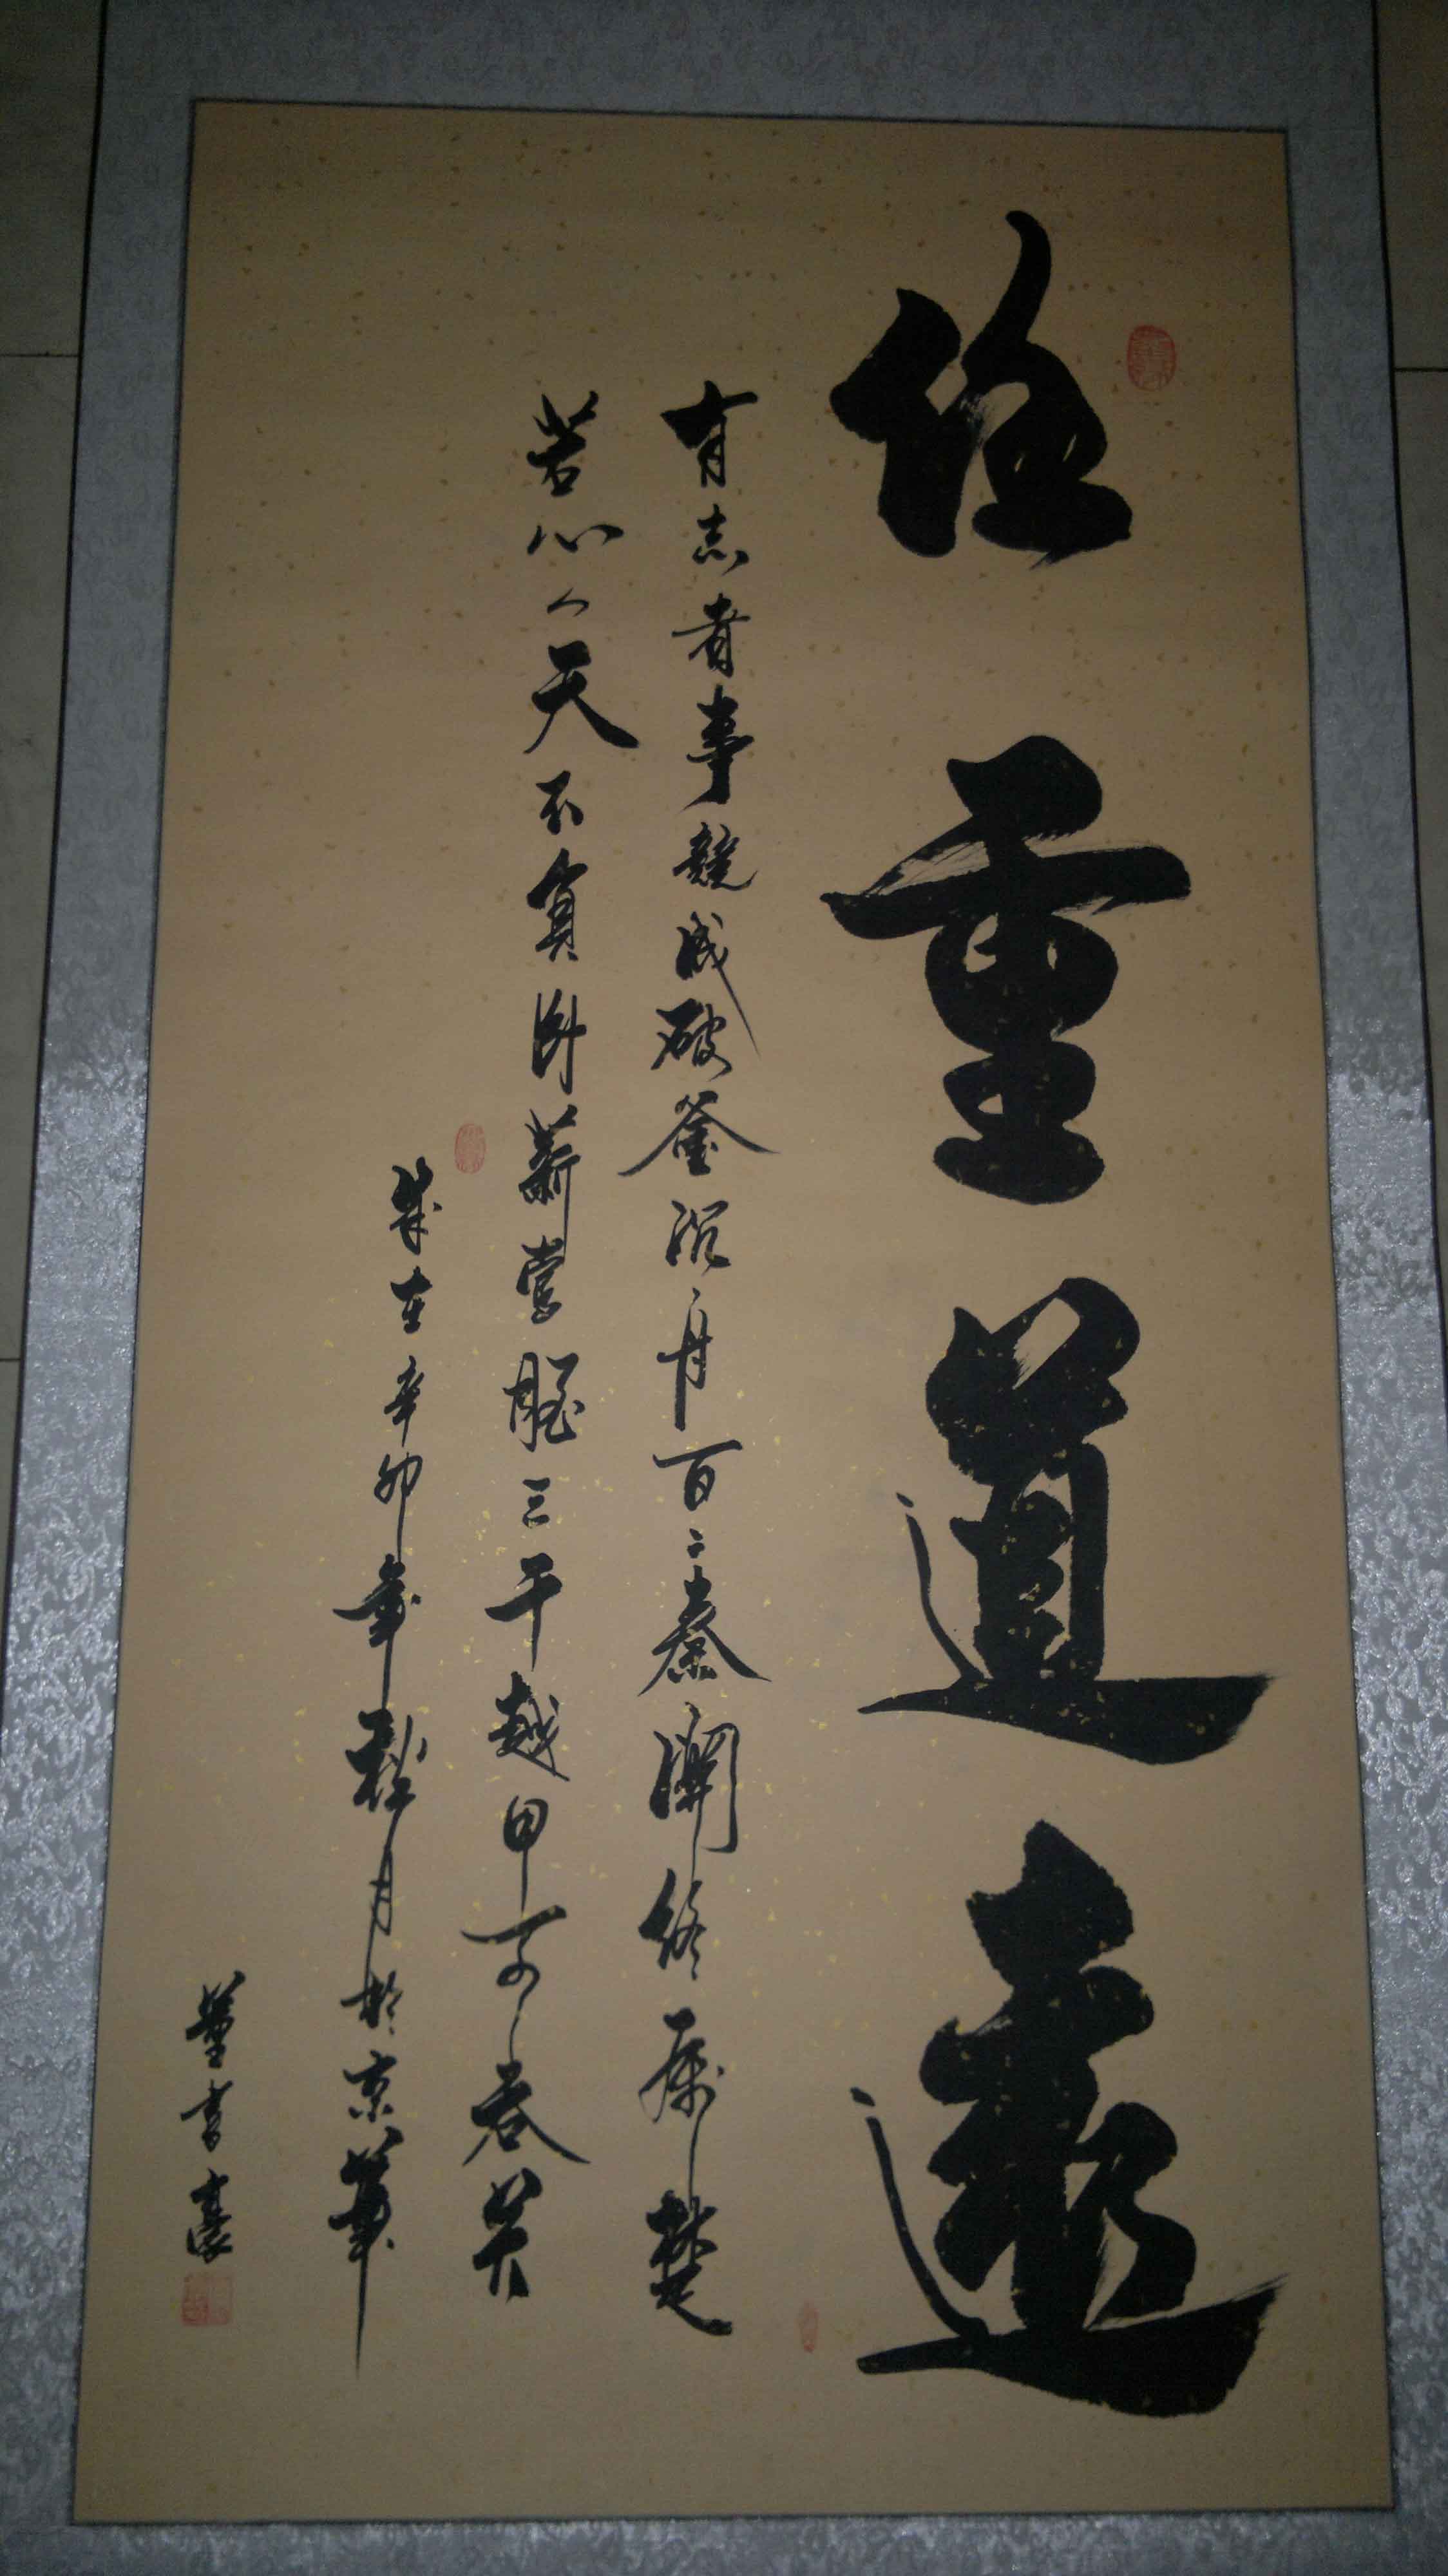 任重道遠
有志者事競成破釜沉舟百二秦關終屬楚
苦心人天不負卧薪嘗膽三千越甲可吞吴
歲在辛卯年秋月於京華
董書豪